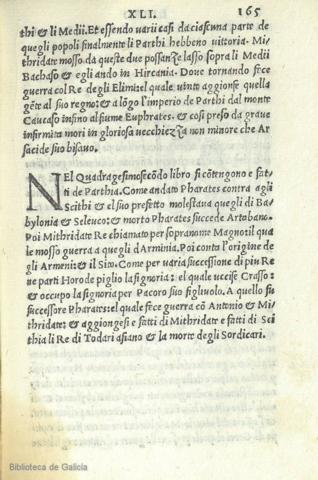 XLI. 165
thi & li Medii. Et essendo varii casi da ciascuna parte de
quegli popoli finalmente li Parthi hebbeno vittoria. Mi-
thridate mosso da queste due possanze lasso sopra li Medii
Bachaso & egli ando in Hircania. Doue tornando fece
guerra col Re degli Elimizel quale vinto aggionse quella
gēte al suo regno: & a lōgo l'imperio de Parthi dal monte
Caucaso insino al fiume Euphrates. & cosi preso da graue
infirmita mori in gloriosa vecchiezza non minore che Ar
sacide suo bisauo.
NEl Quadragesimosecōdo libro si cōtengono e fat-
ti de Parthia. Come andato Pharates contra agli
Scithi & el suo prefetto molestaua quegli di Ba-
bylonia & Seleuco: & morto Pharates succede Artabano.
Poi Mithridate Re chiamato per sopranome Magno: il qua
le mosso guerra a quegli d'Arminia. Poi conta l'origine de
gli Armeni: & il Sito. Come per varia successione di piu Re
ue parti Horode piglio la signoria: el quale uccise Crasso:
& occupo la signoria per Pacoro suo figliuolo. A quello su
successore Pharates: el quale fece guerra cō Antonio & Mi-
thridate: & aggiongesi e fatti di Mithridate e fatti di Sci
thia li Re di Todari asiano & la morte degli Sordicari.
Biblioteca de Galicia